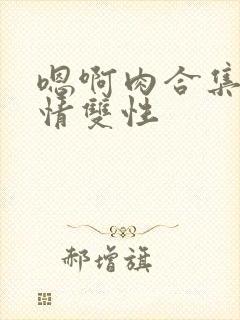 嗯啊肉合集
情雙性
郝增旗